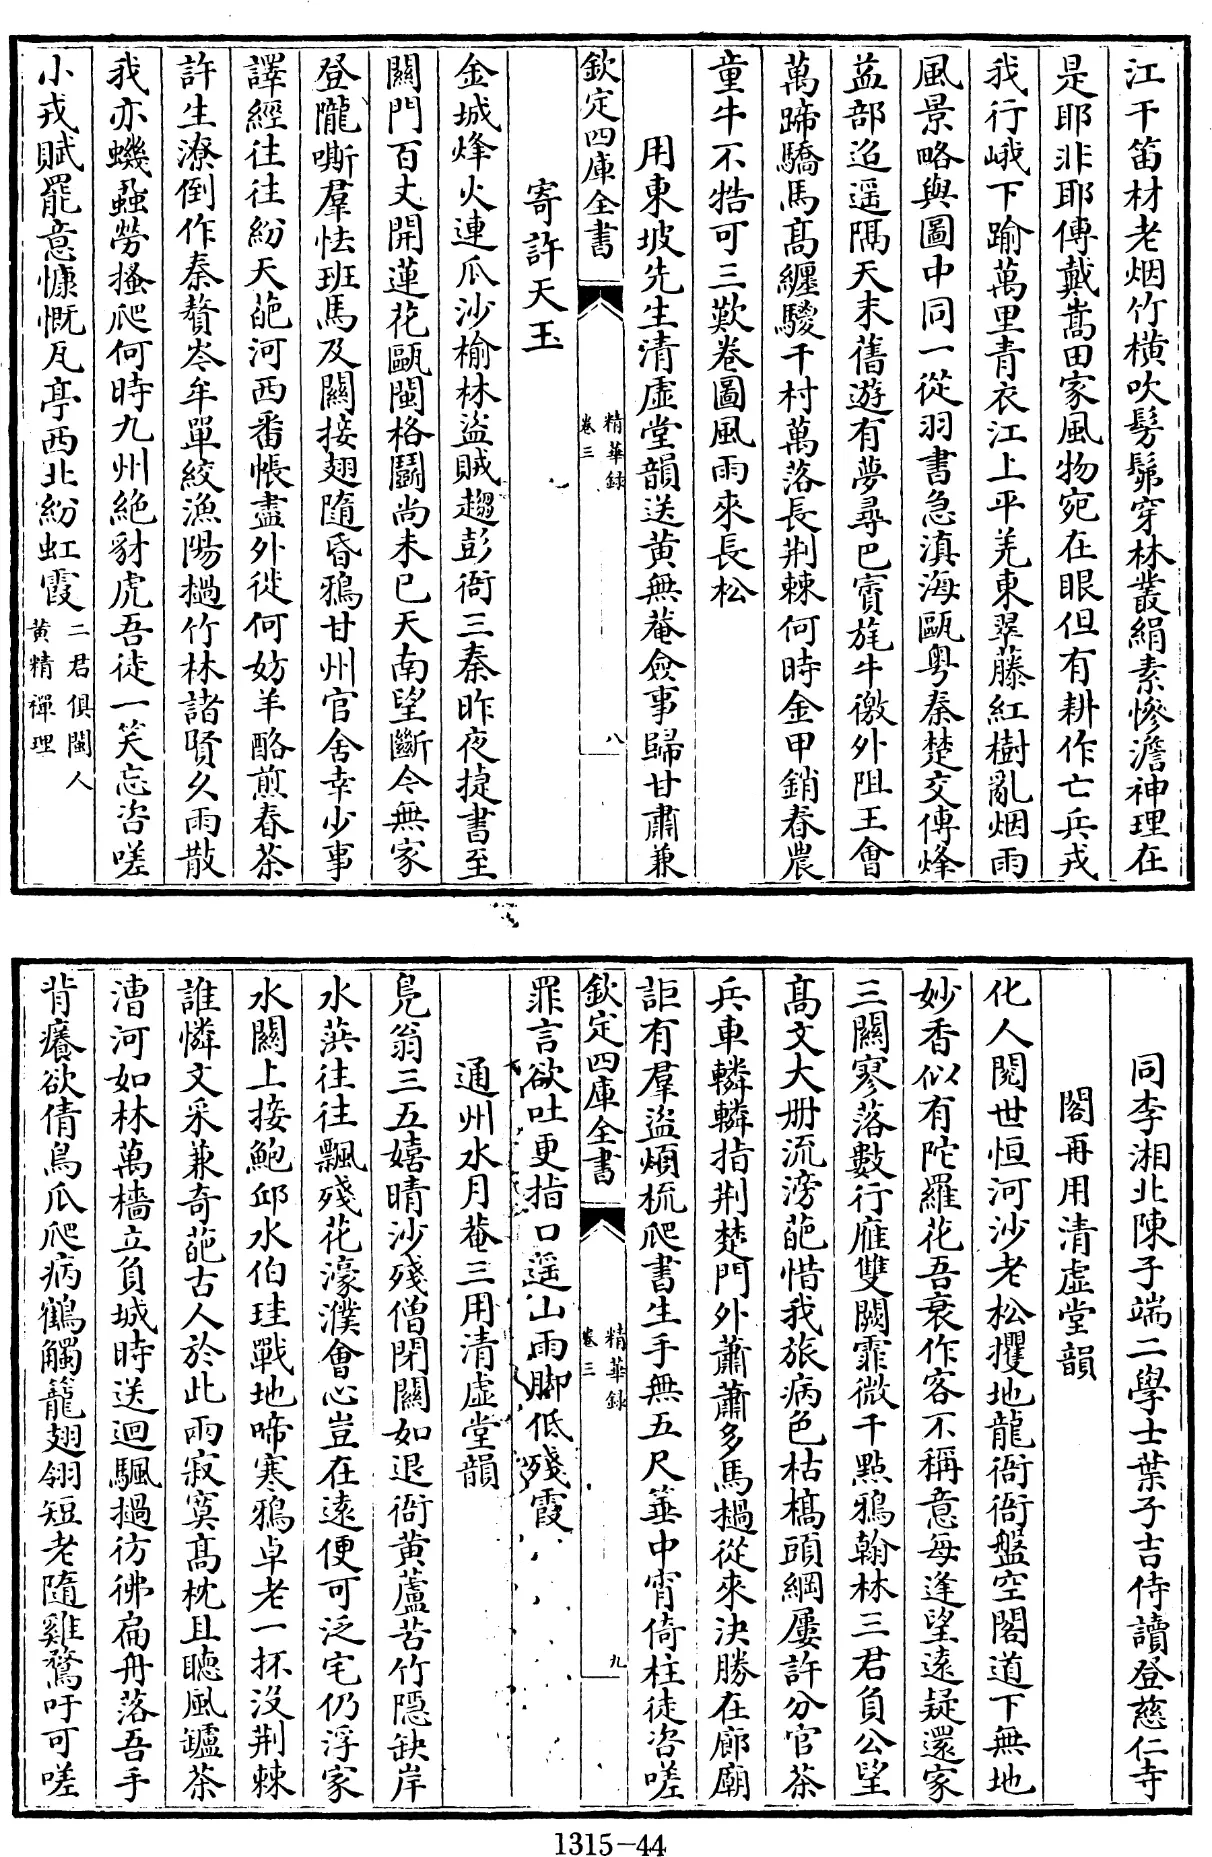 江干笛材老烟竹橫吹髣髴穿林叢絹素慘澹神理在
是耶非耶傳戴嵩田家風物宛在眼但有耕作亡兵戎
我行峨下踰萬里青衣江上平羌東翠藤紅樹亂烟雨
風景略與圖中同一從羽書急滇海甌粤秦楚交傳烽
益部迢遥隅天末舊遊有夢尋巴賨旄牛徼外阻王會
萬蹄驕馬髙纒騣千村萬落長荆棘何時金甲銷春農
童牛不牿可三歎卷圖風雨來長松
用東坡先生清虛堂韻送黄無菴僉事歸甘肅兼
欽定四庫全書
精華録
卷三
八
寄許天玉
金城烽火連瓜沙榆林盜賊趨彭衙三秦昨夜捷書至
關門百丈開蓮花甌閩格鬬尚未已天南望斷今無家
登隴嘶羣怯班馬及關接翅隨昏鴉甘州官舍幸少事
譯經往往紛天葩河西番帳盡外徙何妨羊酪煎春茶
許生潦倒作秦贅岑牟單絞漁陽撾竹林諸賢久雨散
我亦蟣蝨勞搔爬何時九州絶豺虎吾徒一笑忘咨嗟
小戎賦罷意慷慨瓦亭西北紛虹霞
二君俱閩人
黄精禪理
同李湘北陳子端二學士葉子吉侍讀登慈仁寺
閣再用清虛堂韻
化人閱世恒河沙老松攫地龍衙衙盤空閣道下無地
妙香似有陀羅花吾衰作客不稱意每逢望遠疑還家
三關寥落數行雁雙闕霏微千點鴉翰林三君負公望
髙文大册流滂葩惜我旅病色枯槁頭綱屢許分官茶
兵車轔轔指荆楚門外蕭蕭多馬撾從來決勝在廊廟
詎有羣盜煩梳爬書生手無五尺箠中宵倚柱徒咨嗟
欽定四庫全書
精華録
卷三
九
罪言欲吐更指口遥山雨脚低殘霞
通州水月菴三用清虛堂韻
鳬翁三五嬉晴沙殘僧閉關如退衙黄蘆苦竹隱缺岸
水葓往往飄殘花濠濮會心豈在遠便可泛宅仍浮家
水關上接鮑邱水伯珪戰地啼寒鴉卓老一抔没荆棘
誰憐文采兼奇葩古人於此兩寂寞髙枕且聽風罏茶
漕河如林萬檣立負城時送迴颿撾彷彿扁舟落吾手
背癢欲倩鳥爪爬病鶴觸籠翅翎短老隨雞鶩吁可嗟
1315-44